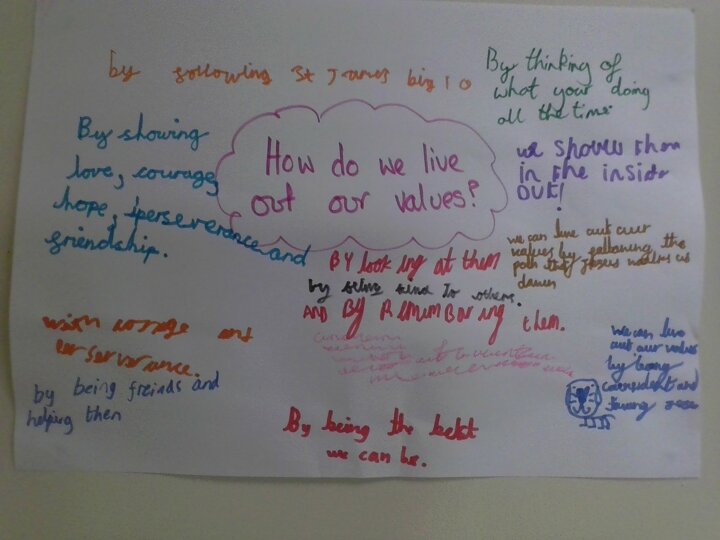 by following St James big 10
By thinking of
what your doing
all the time.
By showing
love, courage,
hope, perseverance and
friendship.
How do we live
out our values?
we shows them
in the inside
OUT!
we can live out our
values by following the
path that Jesus us
down
BY looking at them
by kind to others.
AND By Remembering them.
with and
perserverance.
by being freinds and
helping then
we can live
out our values
by being
and
By being the best
we can be.